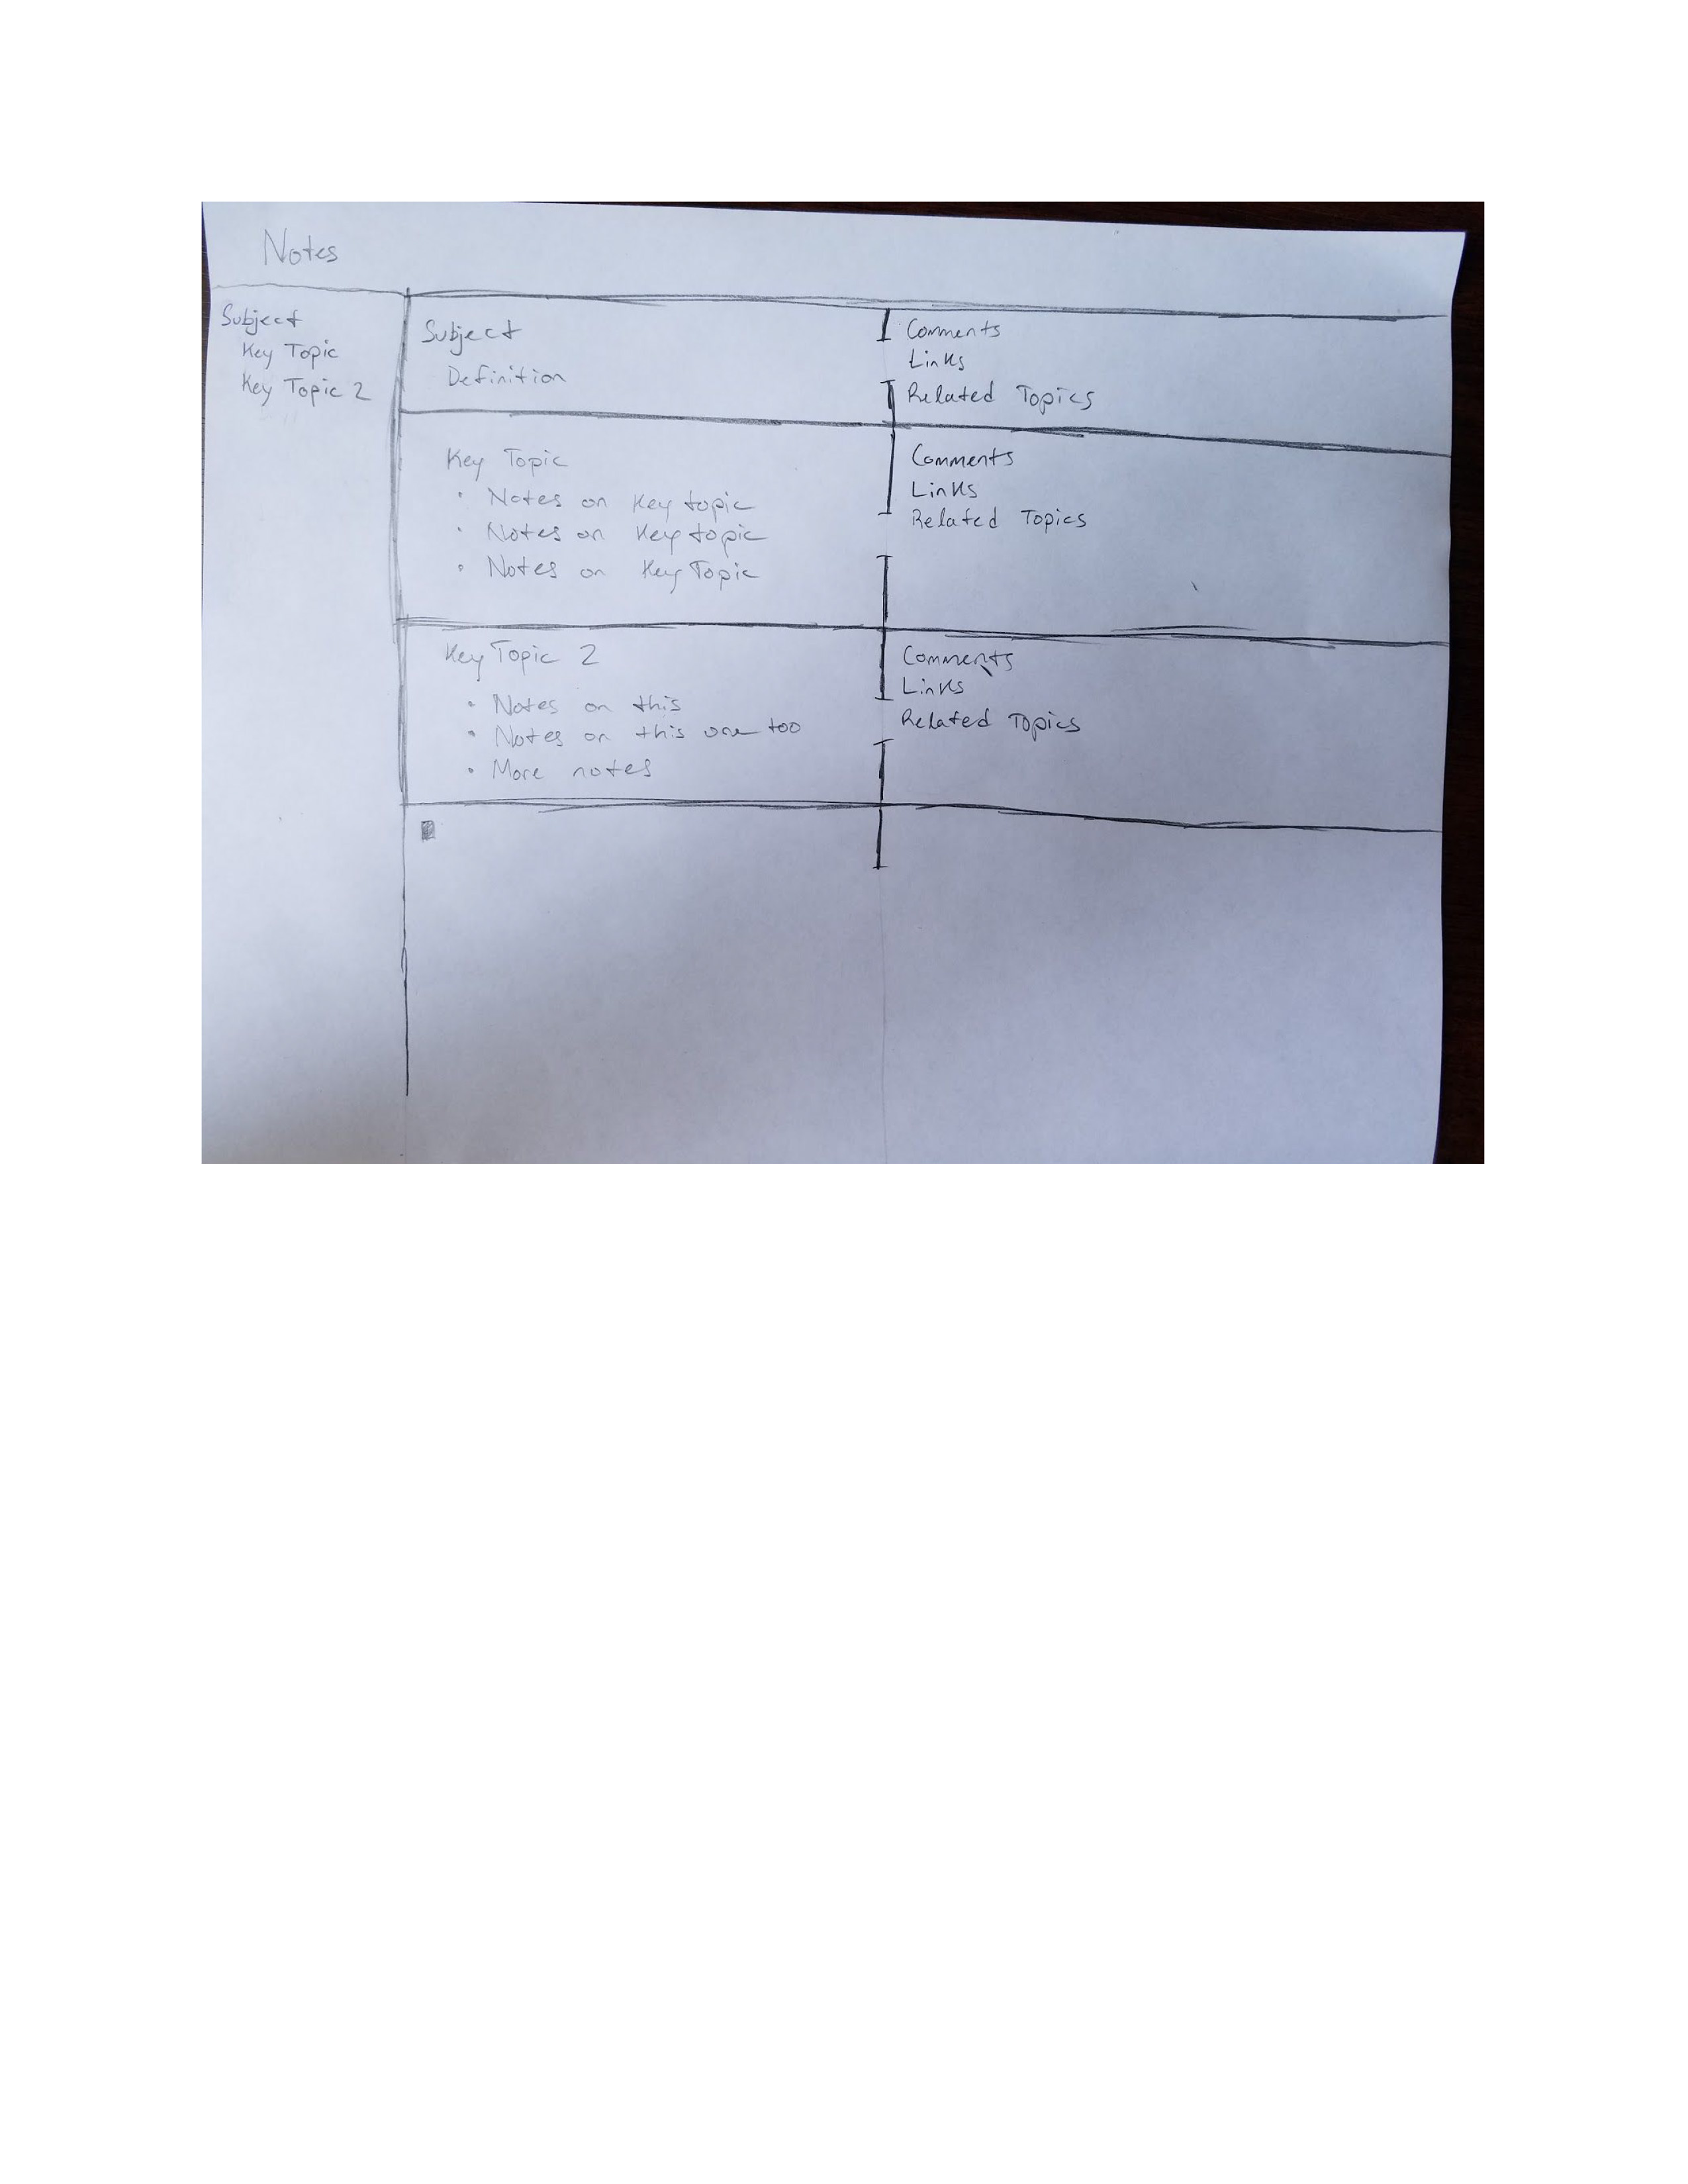 Notes
Subject
Key Topic
Key Topic 2
Subject
Definition
Comments
Links
Related Topics
Key Topic
• Notes on Key topic
• Notes on Key topic
• Notes on Key Topic
Comments
Links
Related Topics
Key Topic 2
• Notes on this
• Notes on this one too
• More notes
Comments
Links
Related Topics